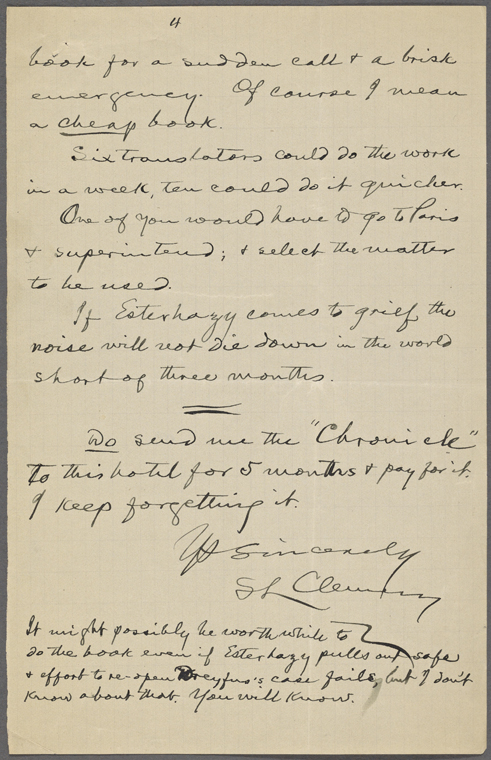 4
book for a sudden call & a brisk
emergency. Of course I mean
a cheap book.
Six translators could do the work
in a week, ten could do it quicker.
One of you would have to go to Paris
& superintend; & select the matter
to be used.
If Esterhazy comes to grief the
noise will not die down in the world
short of three months.
Do send me the "Chronicle"
to this hotel for 5 months & pay for it.
I keep forgetting it.
Ys sincerely
SL Clemens
It might possibly be worth while to
do the book even if Esterhazy pulls out safe
& effort to re-open Dreyfus's case fails, but I don't
know about that. You will know.